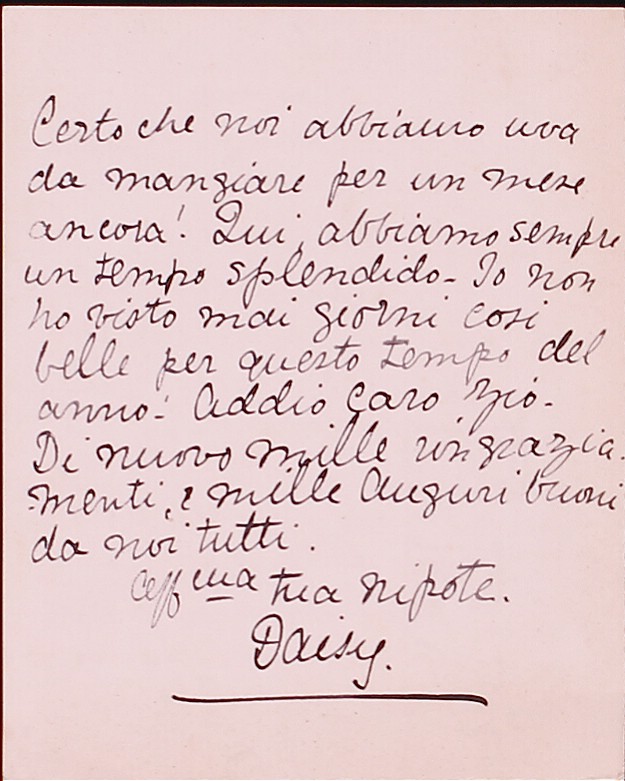 Certo che noi abbiamo uva
da mangiare per un mese
ancora! Qui abbiamo sempre
un tempo splendido - Io non
ho visto mai giorni cosi
belle per questo tempo del
anno -! Addio Caro Zio -
Di nuovo mille ringrazia-
menti, e mille Auguri buoni
da noi tutti.
Aff ma tua nipote.
Daisy.